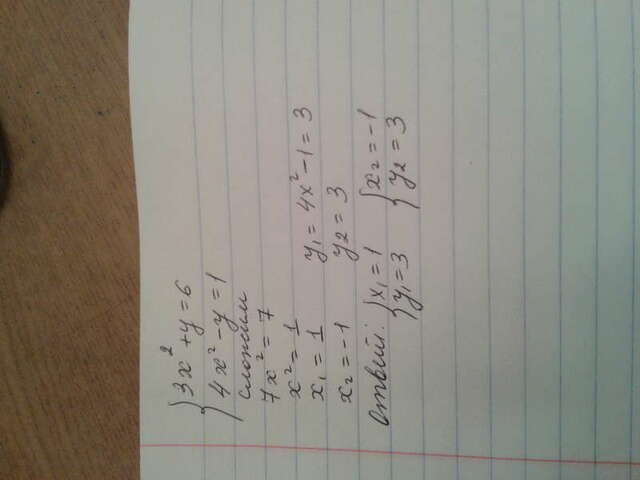 {3x² + y = 6
{4x² - y = 1
сложим
7x² = 7
x² = 1
x₁ = 1 y₁ = 4x² - 1 = 3
x₂ = -1 y₂ = 3
ответ: {x₁ = 1 {x₂ = -1
{y₁ = 3 {y₂ = 3